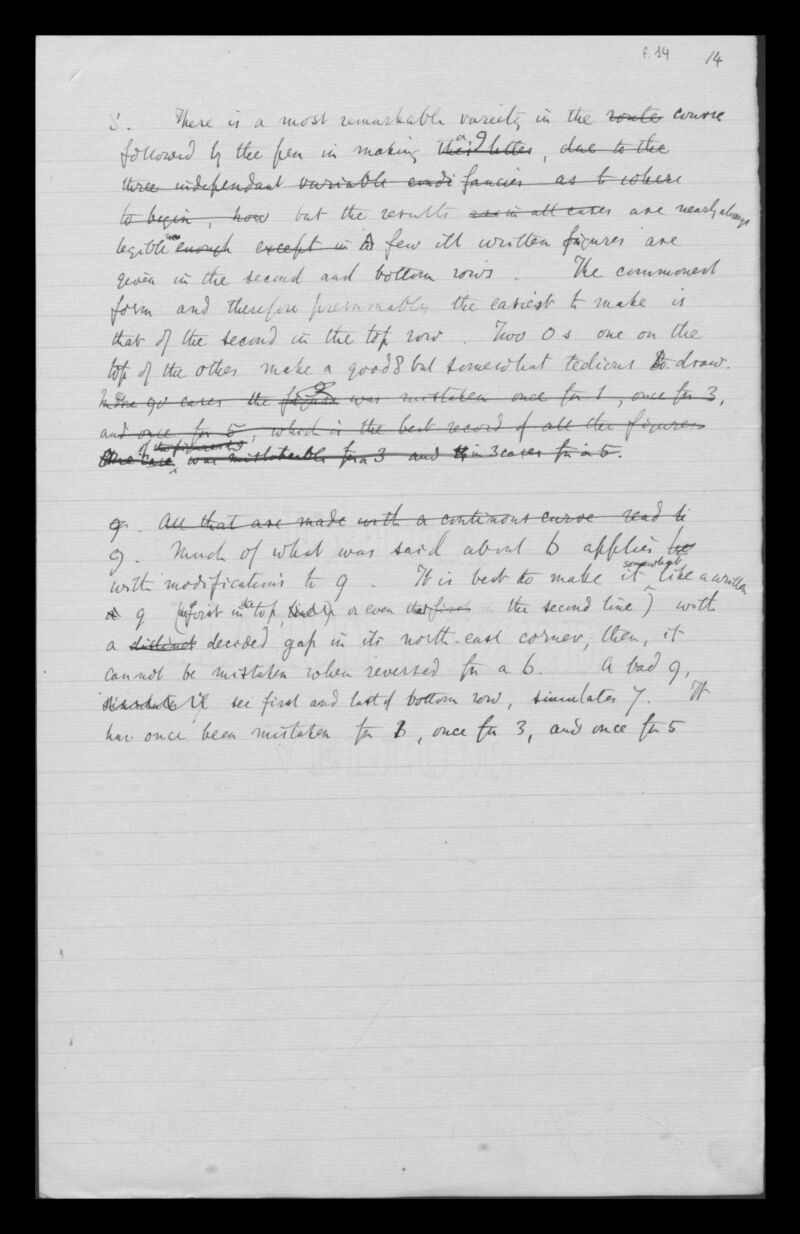 f. 14 14
8. There is a most remarkable variety in the route course
followed by the pen in making a 9 this letter, due to the
three independant variable condi fancies as to where
to begin, how but the results are in all cases are nearly always
legible enough except in A few ill written figures are
given in the second and bottom rows. The commonest
form and therefore presumably the easiest to make is
that of the second in the top row. Two 0s one on the
top of the other make a good 8 but somewhat tedious to draw.
In the 90 cases the figure was mistaken once for 1, once for 3,
and once for 5, which is the best record of all the figures
One case of the figures was mistakeable for a 3 and in 3 cases for a 5.
9. All that are made with a continous curve read
9. Much of what was said about 6 applies
with modifications to 9. It is best to make it somewhat like a written
a 9 (first in the top, or even the second line) with
a distinct decided gap in its north-east corner; then, it
cannot be mistaken when reversed for a 6. A bad 9,
see first and last of bottom row, simulates 7. It
has once been mistaken for 1, once for 3, and once for 5